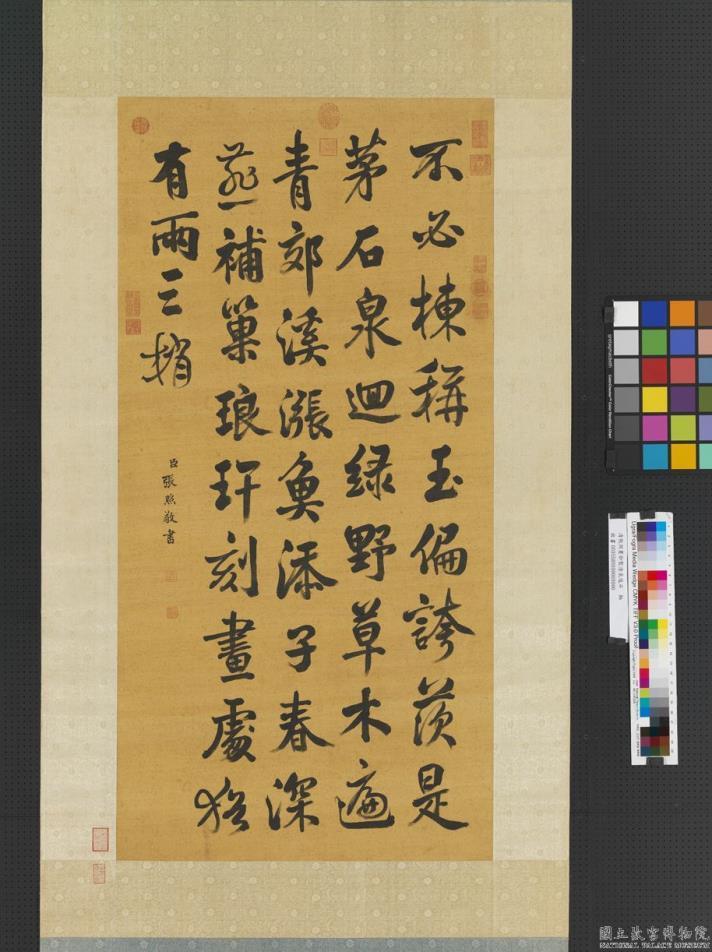 不必棟稱玉偏誇茨是
茅石泉迴綠野草木遍
青郊溪漲魚添子春深
燕補巢琅玕刻畫處猶
有兩三梢
臣張照敬書
國立故宮博物院
NATIONAL PALACE MUSEUM